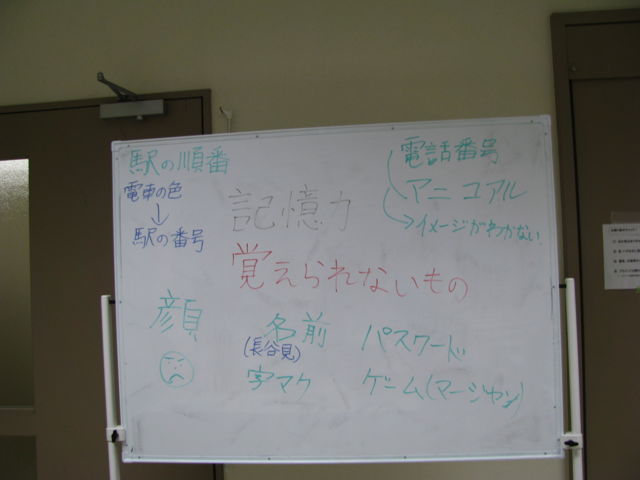 駅の順番
電車の色
↓
駅の番号
記憶力
覚えられないもの
電話番号
アニュアル
イメージがわかない
顔
名前
(長谷見)
字マク
パスワード
ゲーム(マージャン)